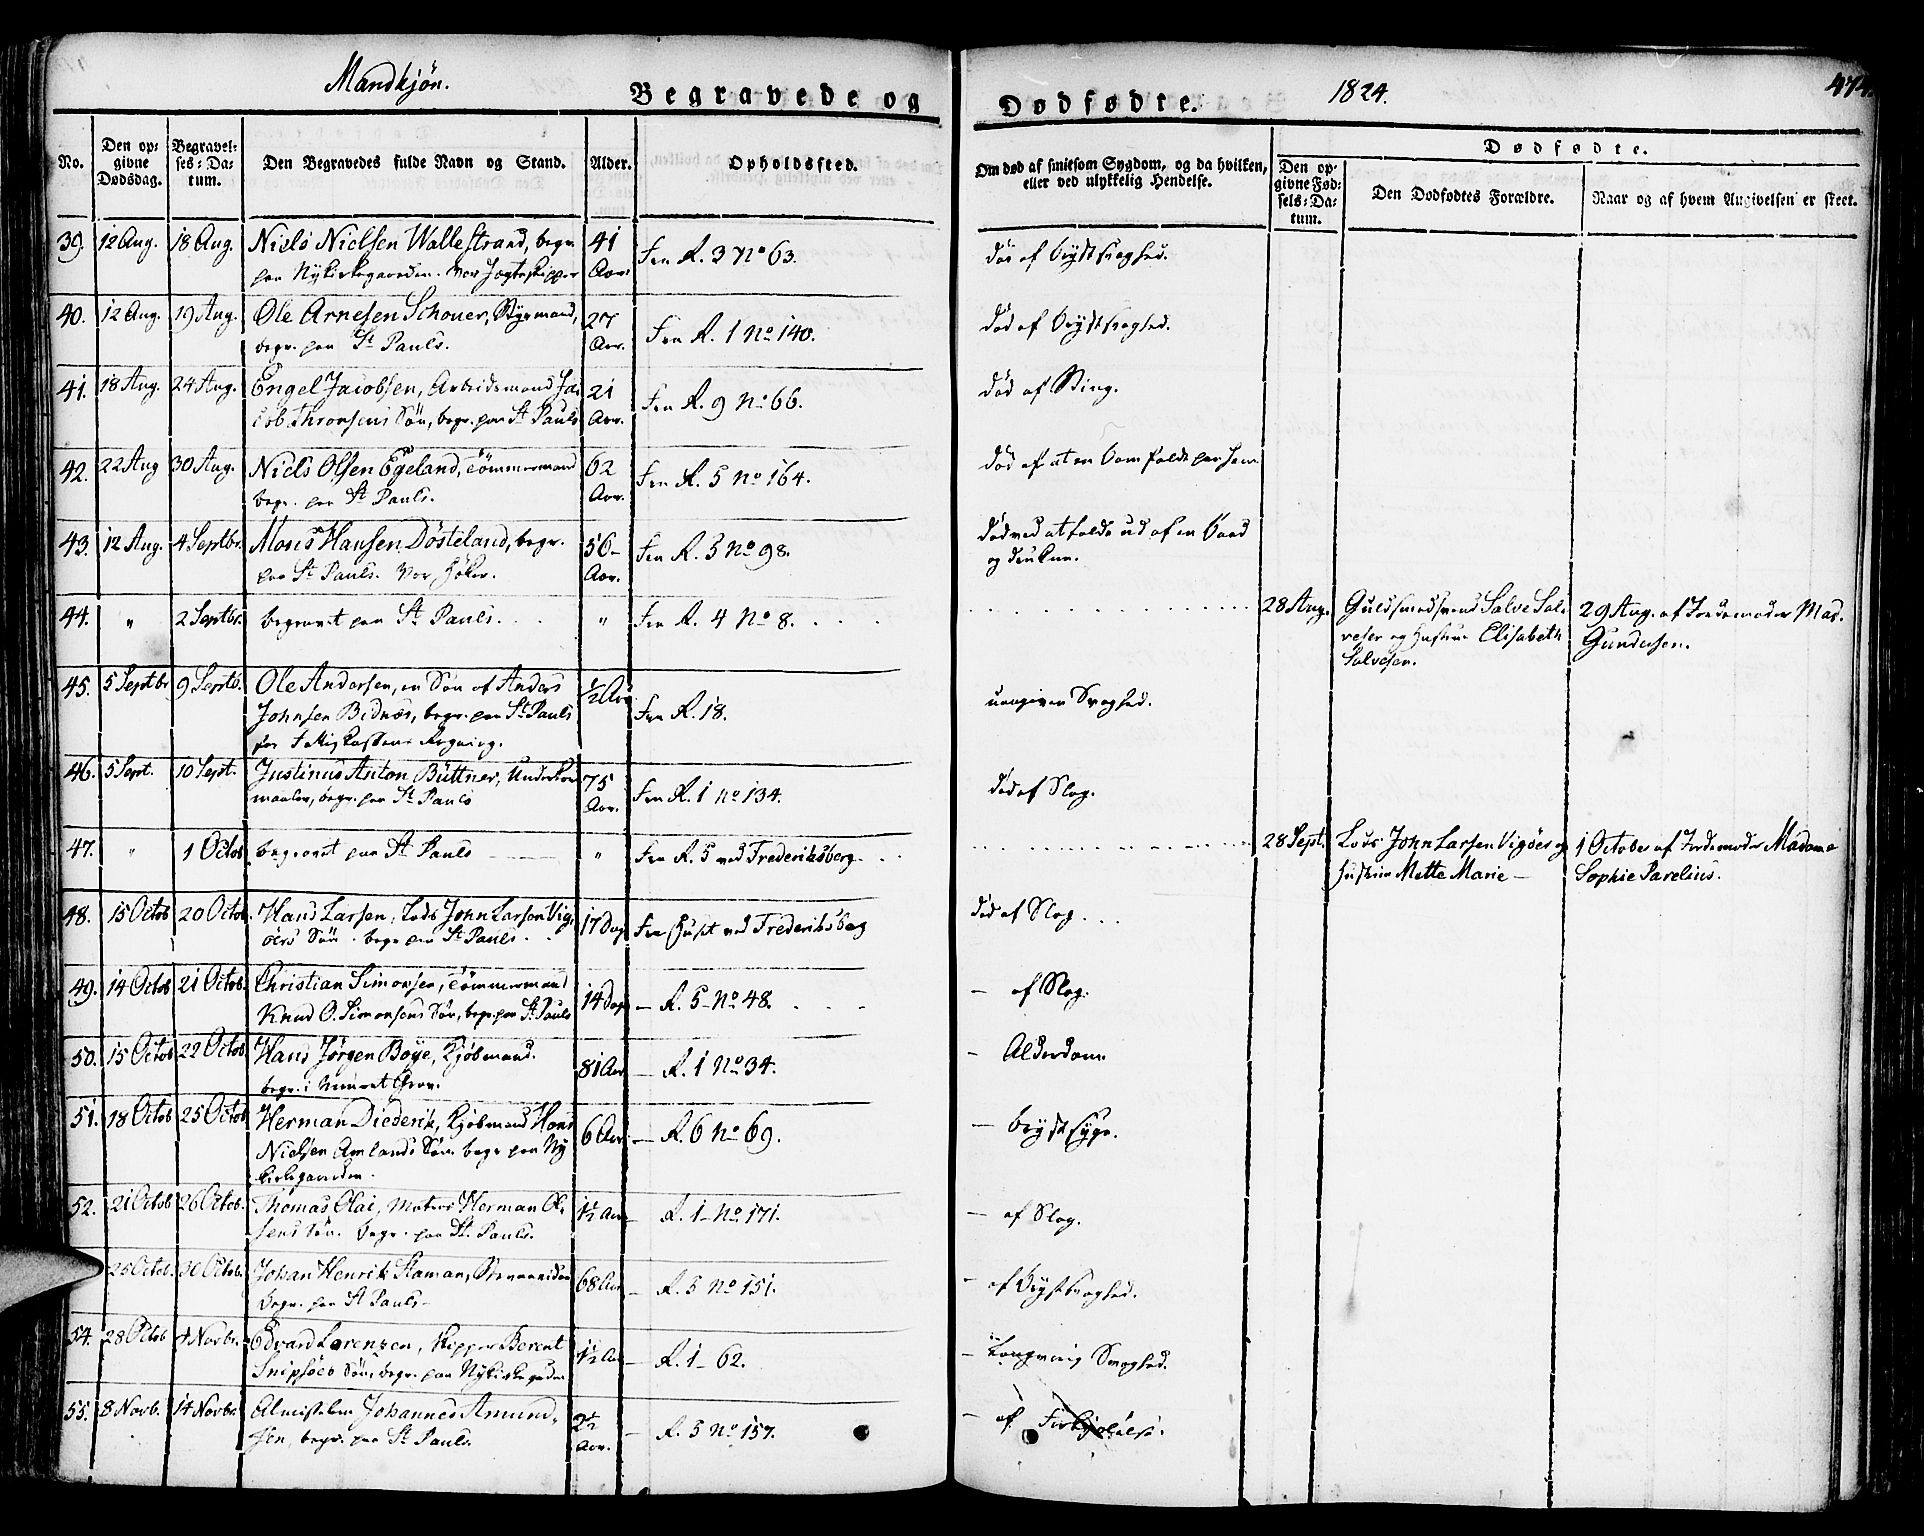 Mandkjön.
Begravede og
Dødfødte.
1824.
474.
No.
Den op-
givne
Dødsdag.
Begravel-
ses-Da-
tum.
Den Begravedes fulde Navn og Stand.
Alder.
Opholdssted.
Om død af smitsom Sygdom, og da hvilken,
eller ved ulykkelig Hendelse.
Dødfødte.
Den op-
givne Fød-
sels-Da-
tum.
Den Dødfødtes Forældre.
Naar og af hvem Angivelsen er skeet.
39. 12 Aug. 18 Aug. Niels Nielsen Wallestrand, begr. 41 Fra R. 3 No 63. død af Brystsvaghed.
paa Nykirkegaarden. var Jagteskipper Aar.
40. 12 Aug. 19 Aug. Ole Arnesen Schouer, Styrmand, 27 Fra R. 1 No 140. død af Brystsvaghed.
begr. paa St Pauls. Aar.
41. 18 Aug. 24 Aug. Engel Jacobsen, Arbeidsmand Ja- 21 Fra R. 9 No 66. død af Sting.
cob Thronsens Søn, begr. paa St Pauls Aar.
42. 22 Aug 30 Aug. Niels Olsen Egeland, Tömmermand 62 Fra R. 5 No 164. død af at en Bom faldt paa ham
begr. paa St Pauls. Aar.
43. 12 Aug. 4 Septbr. Mons Hansen Dösteland, begr. 56 Fra R. 3 No 98. død ved at falde ud af en Baad
paa St Pauls. Var Höker. Aar. og drukne.
44. " 2 Septbr. begravet paa St Pauls. " Fra R. 4 No 8. 28 Aug. Guldsmedsvend Salve Sal- 29 Aug. af Jordemoder Mad.
vesen og Hustru Elisabeth Gundersen.
Salvesen.
45. 5 Septbr 9 Septb. Ole Andersen, en Søn af Anders 1/2 Aar Fra R. 18. uangiven Svaghed.
Johnsen Bidnes, begr. paa St Pauls
for Fattigkassens Regning.
46. 5 Sept. 10 Sept. Justinus Anton Büttner, Underkor 75 Fra R. 1 No 134. død af Slag.
maaler, begr. paa St Pauls Aar.
47. " 1 Octob begravet paa St Pauls " Fra R. 5 ved Frederiksberg. 28 Sept. Lods John Larsen Vigöer og 1 October af Jordemoder Madame
Hustru Mette Marie – Sophie Parelius.
48. 15 Octob 20 Octob. Hans Larsen, Lods John Larsen Vig- 17 Dag Fra Huset ved Frederiksberg død af Slag.
öers Søn. begr. paa St Pauls.
49. 14 Octob 21 Octob. Christian Simonsen, Tömmermand 14 Dage – R. 5 – No 48. – af Slag.
Knud O. Simonsens Søn, begr. paa St Pauls
50. 15 Octob 22 Octob. Hans Jørgen Boye, Kjøbmand. 81 Aar – R. 1 No 34. – Alderdom.
begr. i Muret Grav.
51. 18 Octob 25 Octob Herman Diederik, Kjøbmand Hans 6 Aar – R. 6 No 69. – Brystsyge.
Nielsen Amlands Søn begr paa Ny
kirkegaarden.
52. 21 Octob 26 Octob. Thomas Olai, Matros Herman Ol- 1½ Aar – R. 1 – No 171. – af Slag.
sens Søn. begr. paa St. Pauls.
25 Octob. 30 Octob. Johan Henrik Staman, 68 Aar – R. 3 No 151. – af Brystsvaghed.
Begr. paa St Pauls –
54. 28 Octob 4 Novbr. Edvard Lorenzen, Skipper Berent 1½ Aar – R. 1 – 62. – Langvarig Svaghed.
Snipsöes Søn, begr. paa Nykirkegaarden
55. 8 Novb. 14 Novbr. Almislem Johannes Amund- 2½ – R. 5 No 157. – af
sen, begr. paa St Pauls. Aar.